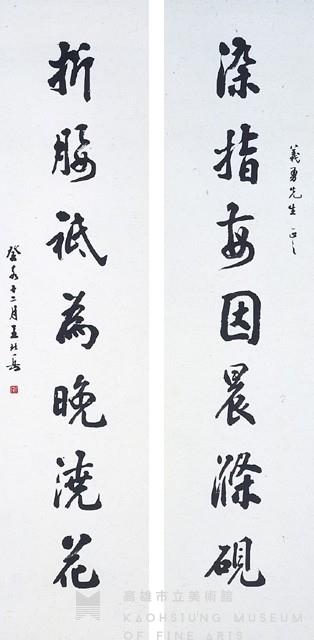 義勇先生正之
染指每因晨滌硯
折腰祇為晚澆花
癸亥十二月王北岳
高雄市立美術館
KAOHSIUNG MUSEUM
OF FINE ARTS